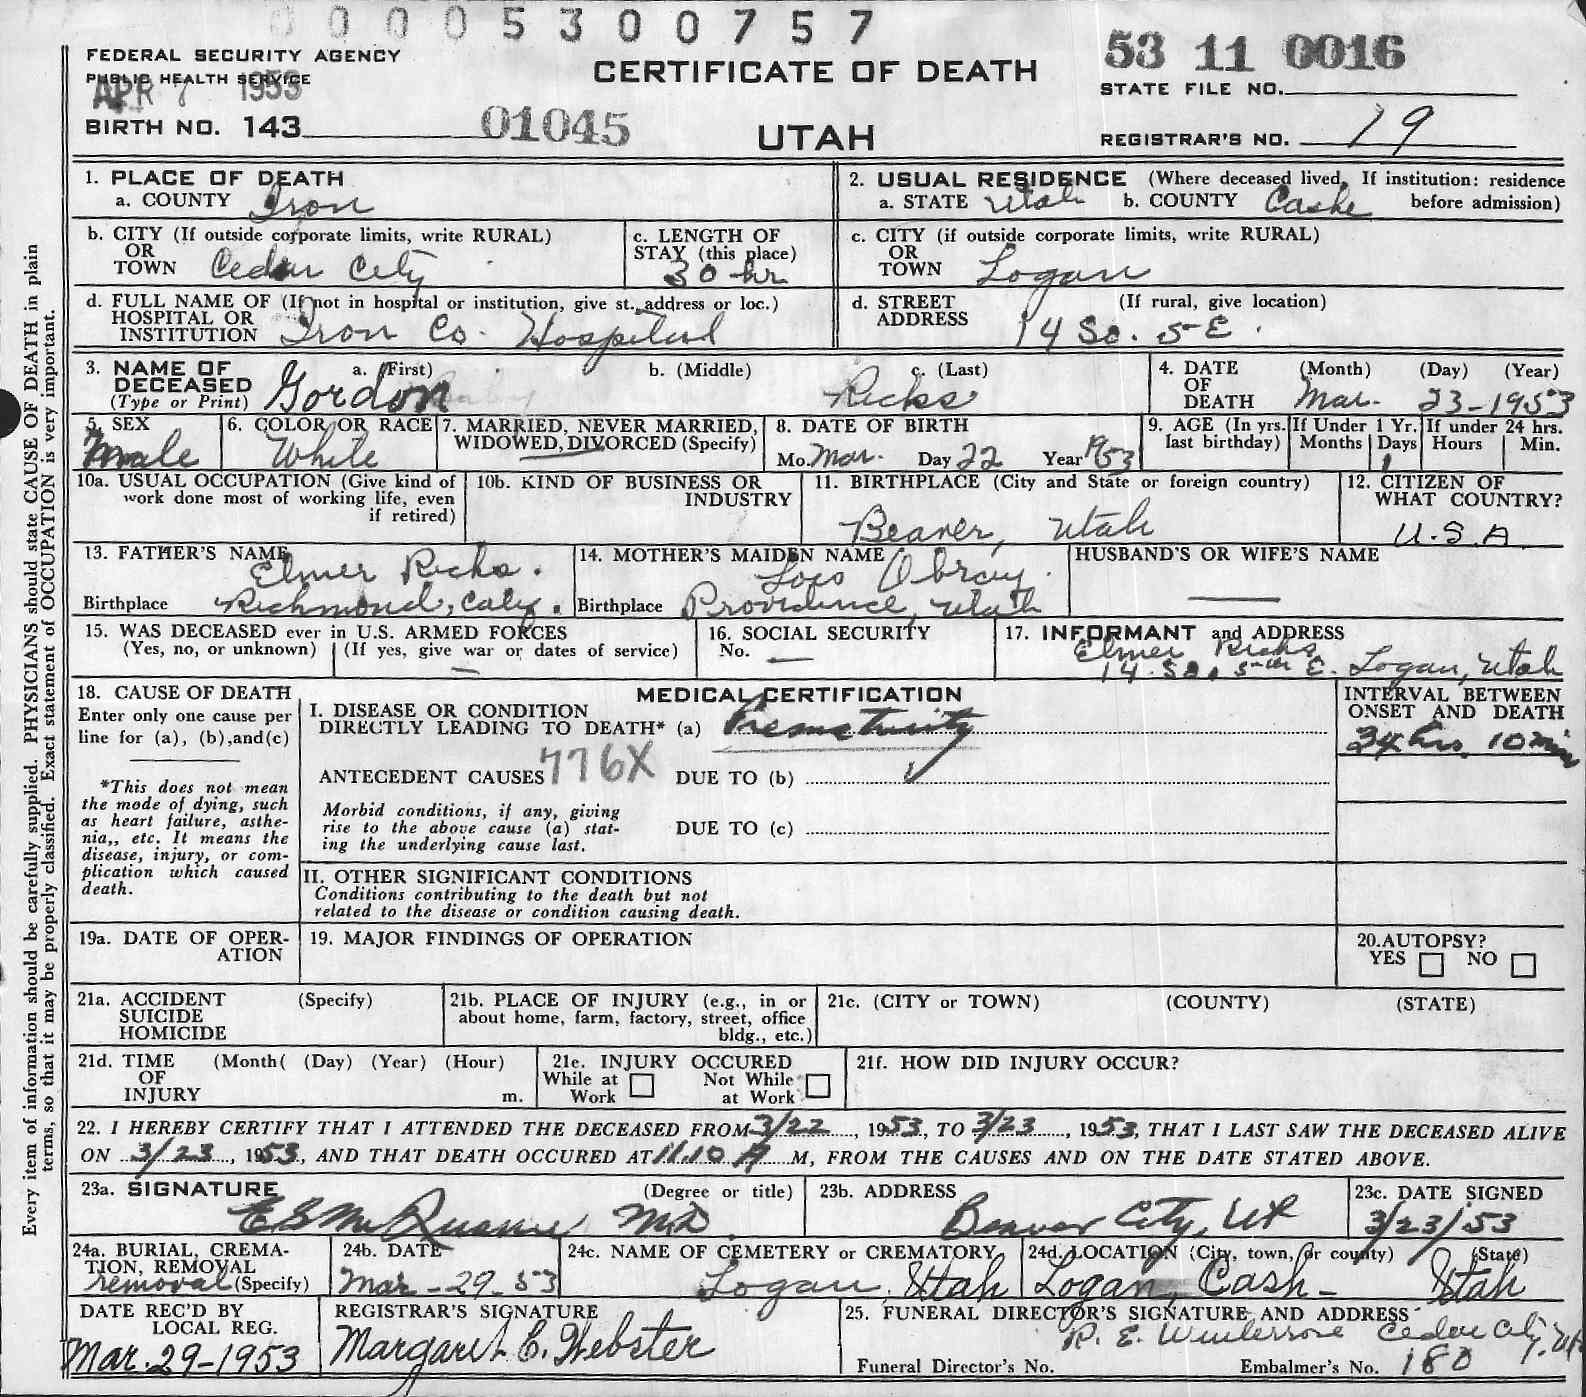 0 0 0 0 5 3 0 0 7 5 7
FEDERAL SECURITY AGENCY
PUBLIC HEALTH SERVICE
APR 7 1953
BIRTH NO. 143
01045
CERTIFICATE OF DEATH
UTAH
53 11 0016
STATE FILE NO.
REGISTRAR'S NO. 19
Every item of information should be carefully supplied. PHYSICIANS should state CAUSE OF DEATH in plain
terms, so that it may be properly classified. Exact statement of OCCUPATION is very important.
1. PLACE OF DEATH
a. COUNTY Iron
2. USUAL RESIDENCE (Where deceased lived. If institution: residence
a. STATE Utah b. COUNTY Cashe before admission)
b. CITY (If outside corporate limits, write RURAL)
OR
TOWN Cedar City
c. LENGTH OF
STAY (this place)
30 hr
c. CITY (if outside corporate limits, write RURAL)
OR
TOWN Logan
d. FULL NAME OF (If not in hospital or institution, give st. address or loc.)
HOSPITAL OR
INSTITUTION Iron Co. Hospital
d. STREET (If rural, give location)
ADDRESS 14 So. 5 E.
3. NAME OF a. (First) b. (Middle) c. (Last)
DECEASED
(Type or Print) Gordon Ricks
4. DATE (Month) (Day) (Year)
OF
DEATH Mar. 23-1953
5. SEX
Male
6. COLOR OR RACE
White
7. MARRIED, NEVER MARRIED,
WIDOWED, DIVORCED (Specify)
8. DATE OF BIRTH
Mo. Mar. Day 22 Year 1953
9. AGE (In yrs. If Under 1 Yr. If under 24 hrs.
last birthday) Months Days Hours Min.
1
10a. USUAL OCCUPATION (Give kind of
work done most of working life, even
if retired)
10b. KIND OF BUSINESS OR
INDUSTRY
11. BIRTHPLACE (City and State or foreign country)
Beaver, Utah
12. CITIZEN OF
WHAT COUNTRY?
U.S.A
13. FATHER'S NAME
Elmer Ricks.
Birthplace Richmond, Calif.
14. MOTHER'S MAIDEN NAME
Lois Obray.
Birthplace Providence, Utah
HUSBAND'S OR WIFE'S NAME
15. WAS DECEASED ever in U.S. ARMED FORCES
(Yes, no, or unknown) (If yes, give war or dates of service)
16. SOCIAL SECURITY
No.
17. INFORMANT and ADDRESS
Elmer Ricks
14. So. 5th E. Logan, Utah
18. CAUSE OF DEATH
Enter only one cause per
line for (a), (b), and (c)
*This does not mean
the mode of dying, such
as heart failure, asthe-
nia,, etc. It means the
disease, injury, or com-
plication which caused
death.
MEDICAL CERTIFICATION
I. DISEASE OR CONDITION
DIRECTLY LEADING TO DEATH* (a) Prematurity
INTERVAL BETWEEN
ONSET AND DEATH
34 hrs. 10 min
ANTECEDENT CAUSES 776X DUE TO (b)
Morbid conditions, if any, giving
rise to the above cause (a) stat-
ing the underlying cause last.
DUE TO (c)
II. OTHER SIGNIFICANT CONDITIONS
Conditions contributing to the death but not
related to the disease or condition causing death.
19a. DATE OF OPER-
ATION
19. MAJOR FINDINGS OF OPERATION
20. AUTOPSY?
YES NO
21a. ACCIDENT (Specify)
SUICIDE
HOMICIDE
21b. PLACE OF INJURY (e.g., in or
about home, farm, factory, street, office
bldg., etc.)
21c. (CITY or TOWN) (COUNTY) (STATE)
21d. TIME (Month( (Day) (Year) (Hour)
OF
INJURY m.
21e. INJURY OCCURED
While at Not While
Work at Work
21f. HOW DID INJURY OCCUR?
22. I HEREBY CERTIFY THAT I ATTENDED THE DECEASED FROM 3/22, 1953, TO 3/23, 1953, THAT I LAST SAW THE DECEASED ALIVE
ON 3/23, 1953, AND THAT DEATH OCCURED AT 11.10 A M, FROM THE CAUSES AND ON THE DATE STATED ABOVE.
23a. SIGNATURE (Degree or title)
M.D.
23b. ADDRESS
Beaver City, Ut
23c. DATE SIGNED
3/23/53
24a. BURIAL, CREMA-
TION, REMOVAL
removal (Specify)
24b. DATE
Mar-29-53
24c. NAME OF CEMETERY or CREMATORY
Logan, Utah
24d. LOCATION (City, town, or county) (State)
Logan, Cash- Utah
DATE REC'D BY
LOCAL REG.
Mar. 29-1953
REGISTRAR'S SIGNATURE
Margaret C. Webster
25. FUNERAL DIRECTOR'S SIGNATURE AND ADDRESS
R. E. Winterrose Cedar City, Ut
Funeral Director's No. Embalmer's No. 180